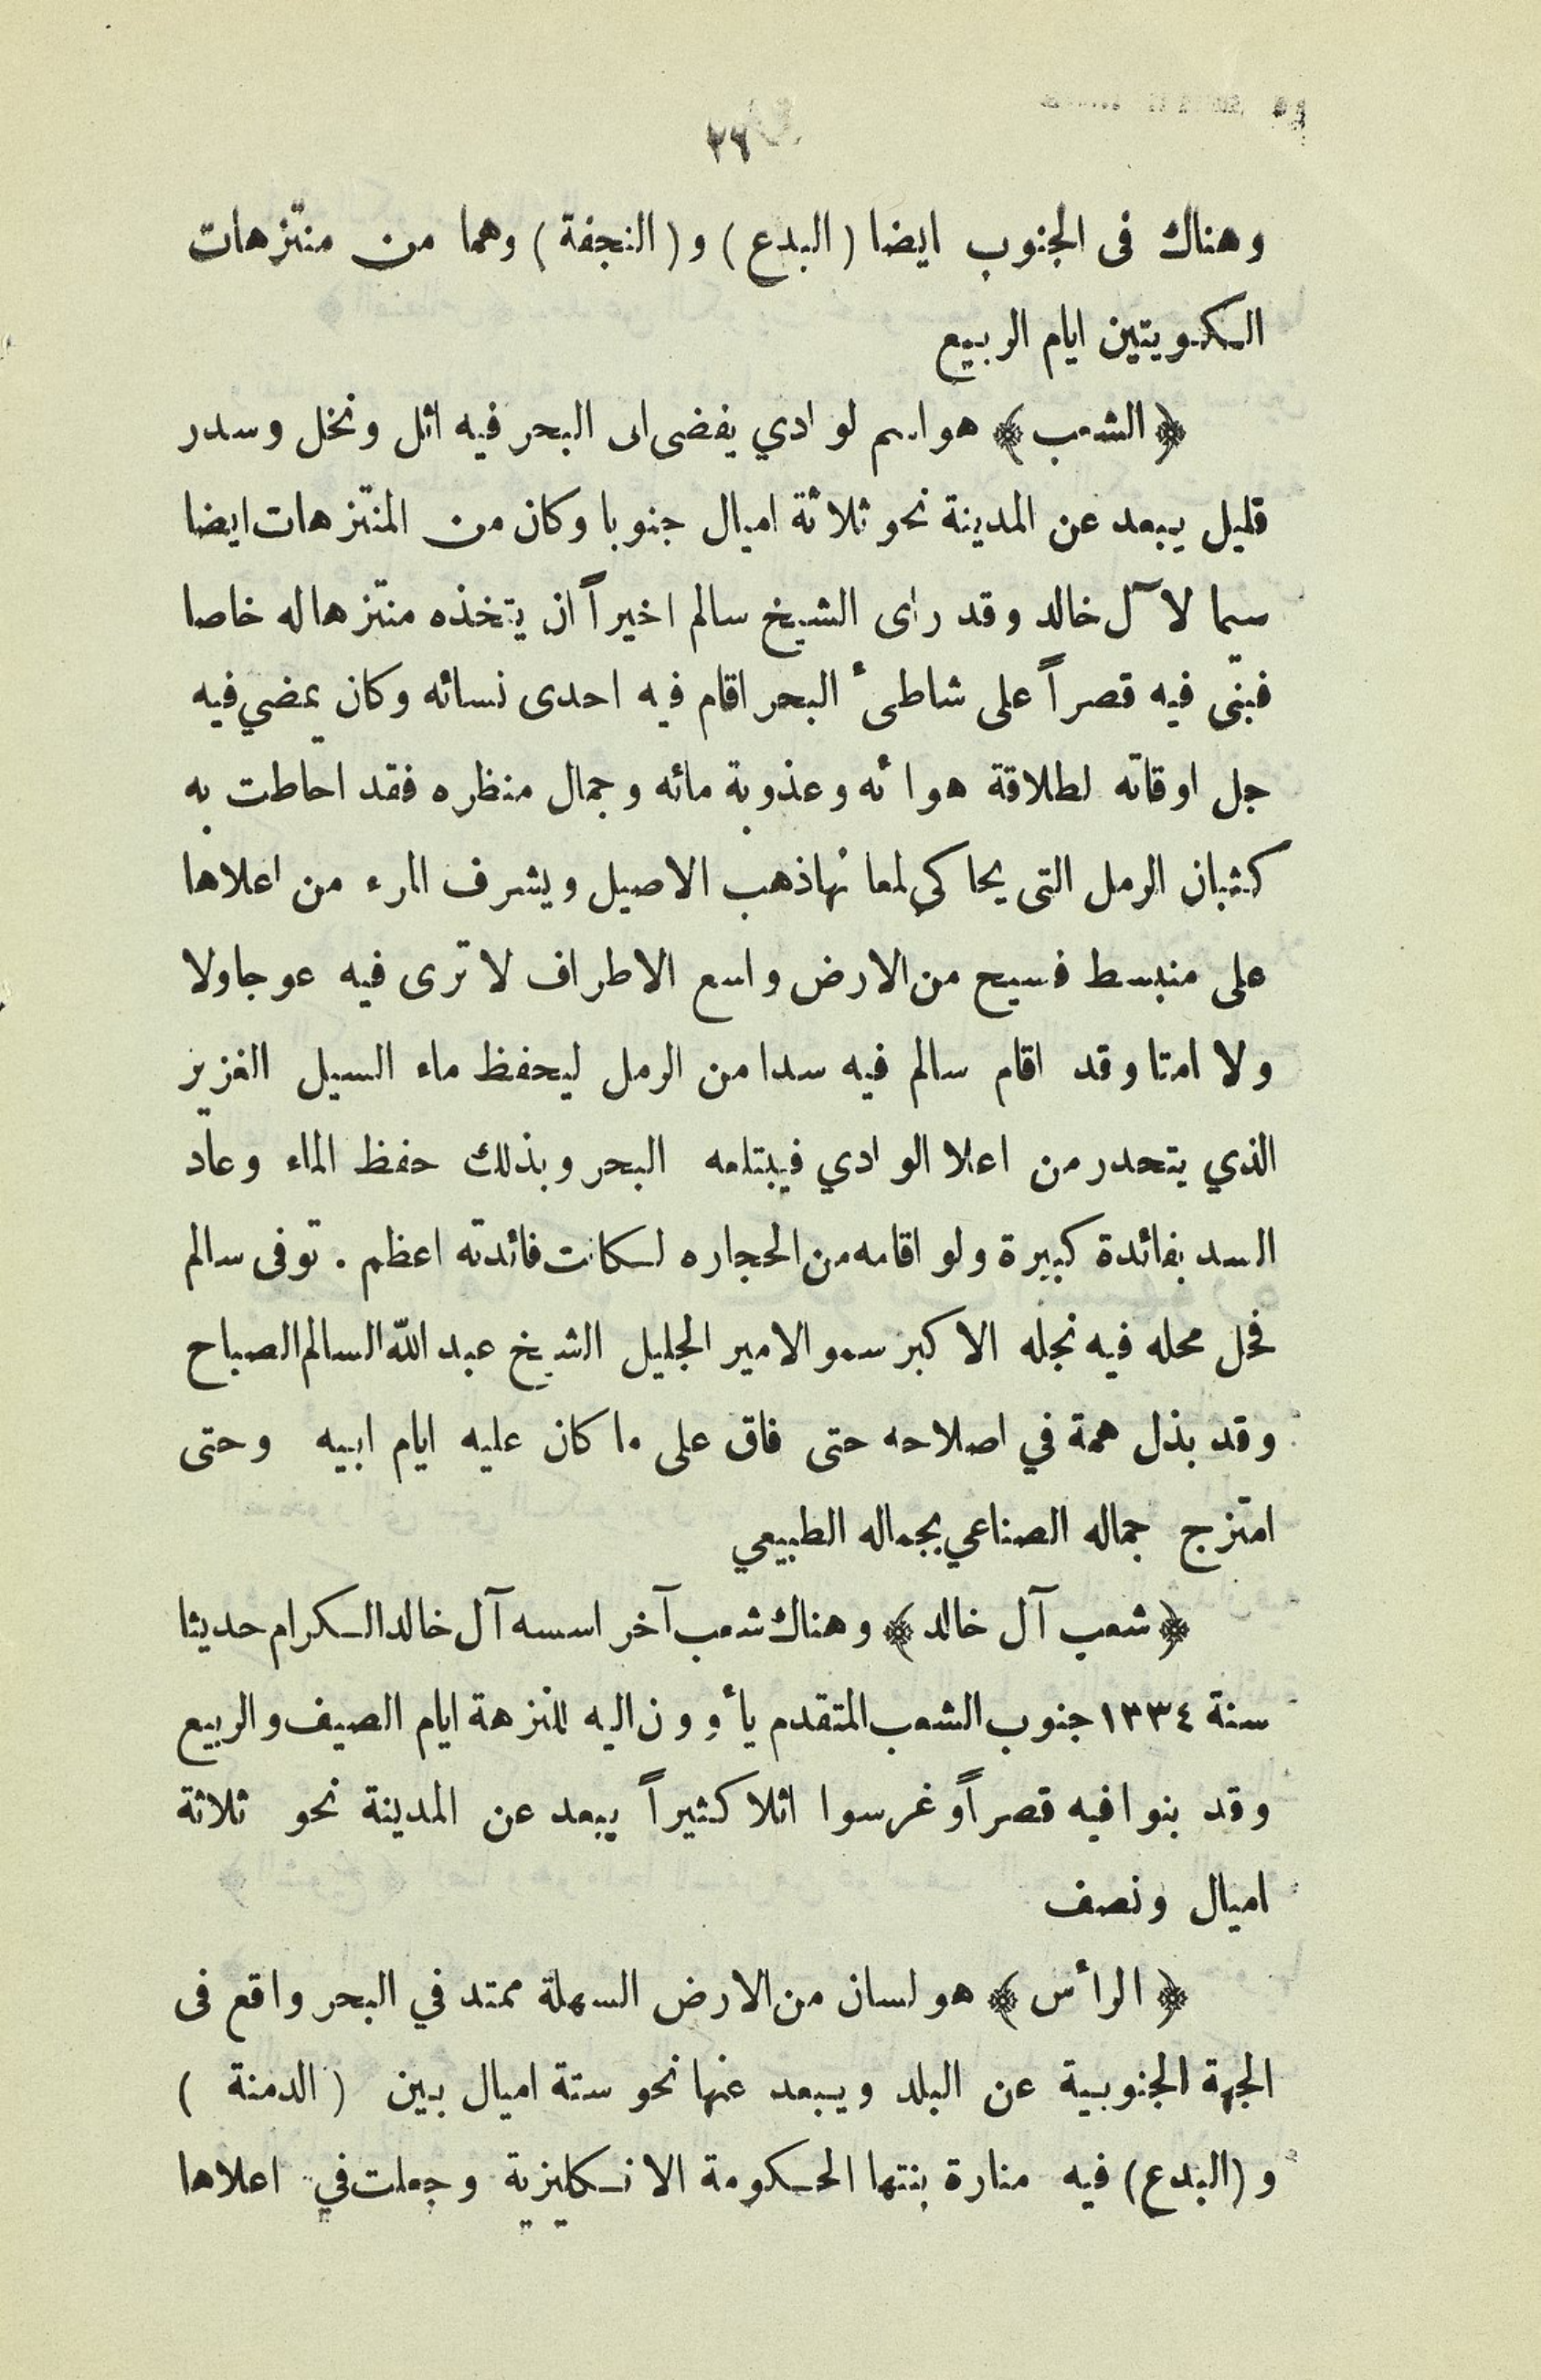 ٢٦
وهناك فى الجنوب ايضا (البدع) و (النجفة) وهما من منتزهات
الكويتين ايام الربيع
﴿ الشعب ﴾ هو اسم لوادي يفضى الى البحر فيه اثل ونخل وسدر
قليل يبعد عن المدينة نحو ثلاثة اميال جنوبا وكان من المنتزهات ايضا
سيما لآل خالد وقد راى الشيخ سالم اخيراً ان يتخذه منتزها له خاصا
فبنى فيه قصراً على شاطىء البحر اقام فيه احدى نسائه وكان يمضي فيه
جل اوقاته لطلاقة هوائه وعذوبة مائه وجمال منظره فقد احاطت به
كثبان الرمل التى يحاكي لمعانها ذهب الاصيل ويشرف المرء من اعلاها
على منبسط فسيح من الارض واسع الاطراف لا ترى فيه عوجا ولا
ولا امتا وقد اقام سالم فيه سدا من الرمل ليحفظ ماء السيل الغزير
الذي يتحدر من اعلا الوادي فيبتلعه البحر وبذلك حفظ الماء وعاد
السد بفائدة كبيرة ولو اقامه من الحجاره لكانت فائدته اعظم . توفى سالم
فحل محله فيه نجله الاكبر سمو الامير الجليل الشيخ عبد الله السالم الصباح
وقد بذل همة في اصلاحه حتى فاق على ما كان عليه ايام ابيه وحتى
امتزج جماله الصناعي بجماله الطبيعي
﴿ شعب آل خالد ﴾ وهناك شعب آخر اسسه آل خالد الكرام حديثا
سنة ١٣٣٤ جنوب الشعب المتقدم يأوون اليه للنزهة ايام الصيف والربيع
وقد بنوا فيه قصراً وغرسوا اثلا كثيراً يبعد عن المدينة نحو ثلاثة
اميال ونصف
﴿ الرأس ﴾ هو لسان من الارض السهلة ممتد في البحر واقع فى
الجهة الجنوبية عن البلد ويبعد عنها نحو ستة اميال بين ( الدمنة )
و (البدع) فيه منارة بنتها الحكومة الانكليزية وجعلت في اعلاها